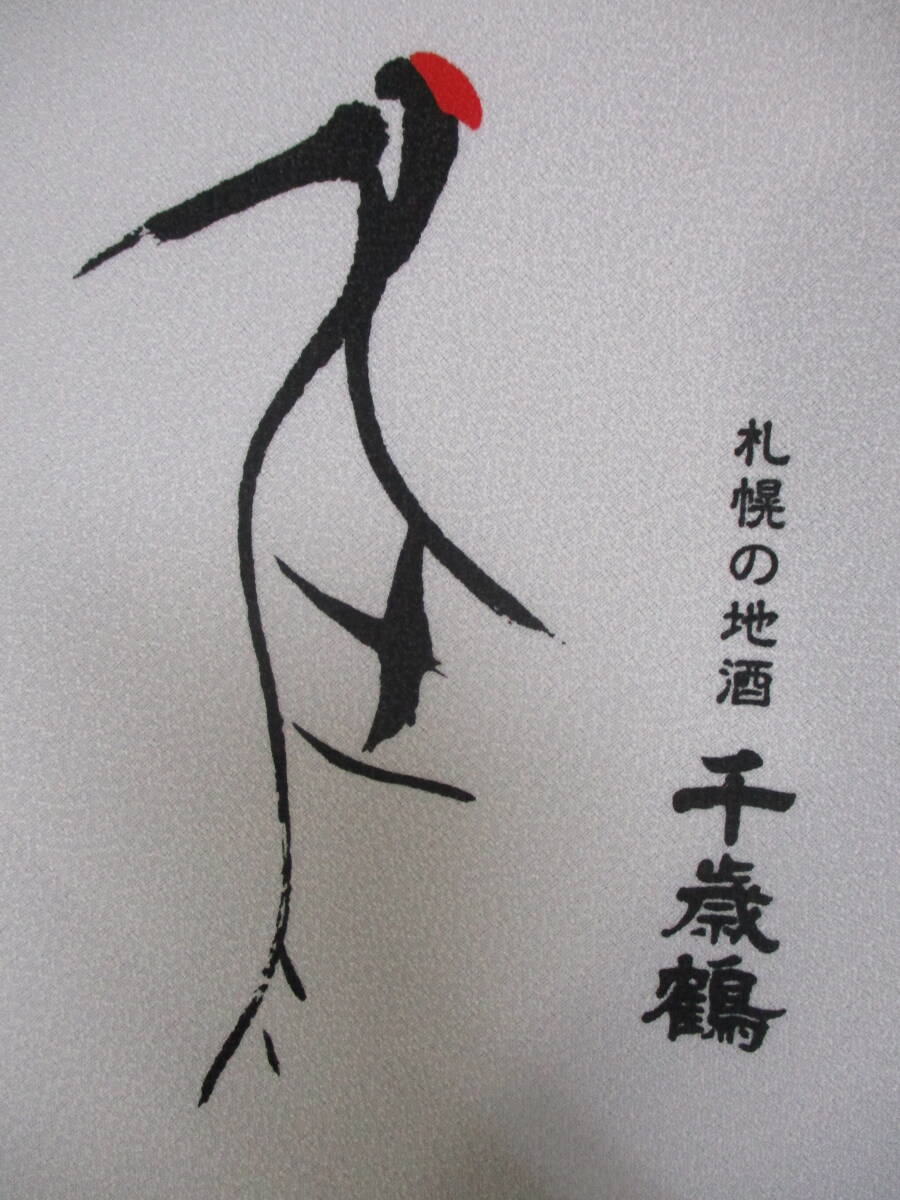 札幌の地酒
千歳鶴